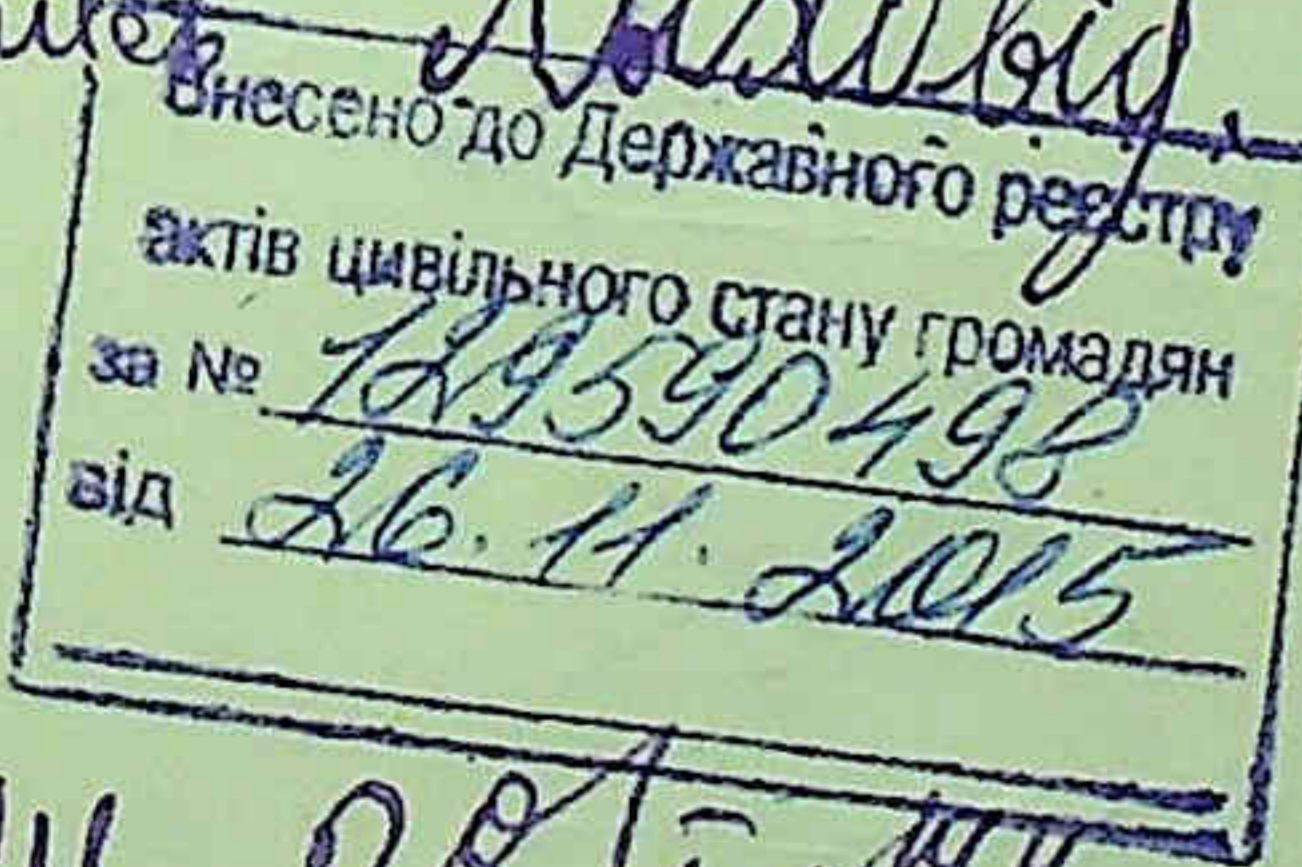 Внесено до Державного реєстру
актів цивільного стану громадян
за № 129590498
від 26.11.2015